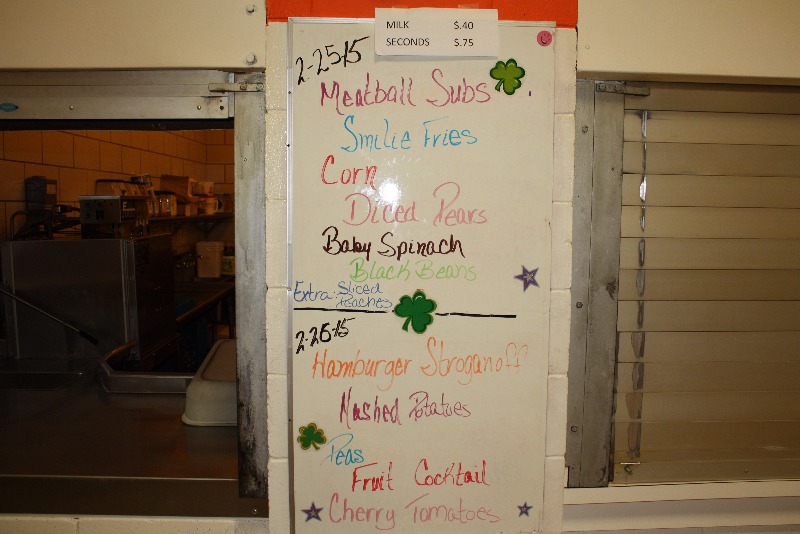 MILK $.40
SECONDS $.75
2-25-15
Meatball Subs
Smilie Fries
Corn
Diced Pears
Baby Spinach
Black Beans
Extra: Sliced
Peaches
2-26-15
Hamburger Stroganoff
Mashed Potatoes
Peas
Fruit Cocktail
Cherry Tomatoes